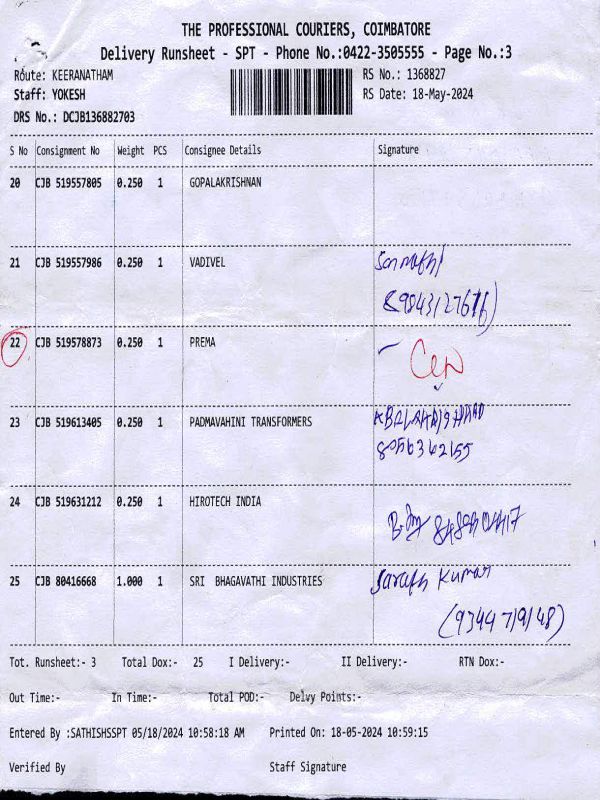 THE PROFESSIONAL COURIERS, COIMBATORE
Delivery Runsheet - SPT - Phone No.:0422-3505555 - Page No.:3
Route: KEERANATHAM RS No.: 1368827
Staff: YOKESH RS Date: 18-May-2024
DRS No.: DCJB136882703
S No Consignment No Weight PCS Consignee Details Signature
20 CJB 519557805 0.250 1 GOPALAKRISHNAN
21 CJB 519557986 0.250 1 VADIVEL
22 CJB 519578873 0.250 1 PREMA
23 CJB 519613405 0.250 1 PADMAVAHINI TRANSFORMERS
8056362155
24 CJB 519631212 0.250 1 HIROTECH INDIA
25 CJB 80416668 1.000 1 SRI BHAGAVATHI INDUSTRIES Sarath Kumar
(9344719148)
Tot. Runsheet:- 3 Total Dox:- 25 I Delivery:- II Delivery:- RTN Dox:-
Out Time:- In Time:- Total POD:- Delvy Points:-
Entered By :SATHISHSSPT 05/18/2024 10:58:18 AM Printed On: 18-05-2024 10:59:15
Verified By Staff Signature